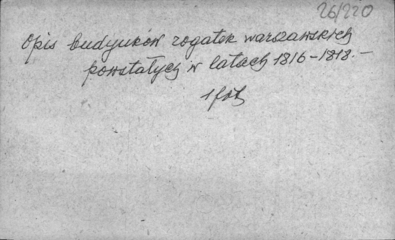 26/220
Opis budynków rogatek warszawskich
powstałych w latach 1816-1818.-
1 fot